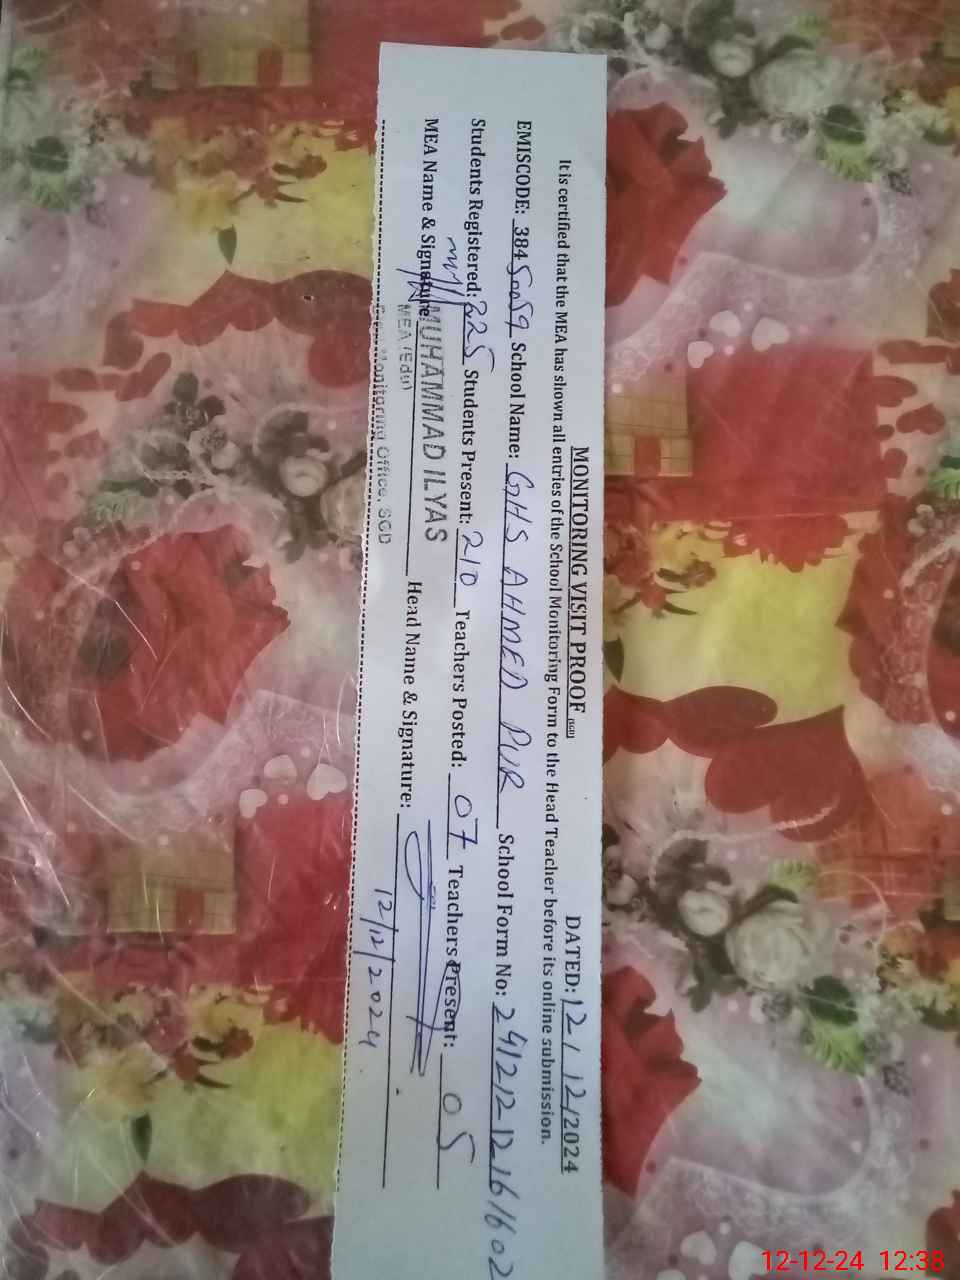 MONITORING VISIT PROOF (SGD) DATED: 12/12/2024
It is certified that the MEA has shown all entries of the School Monitoring Form to the Head Teacher before its online submission.
EMISCODE: 38450059 School Name: GHS AHMED PUR School Form No:
Students Registered: 225 Students Present: 210 Teachers Posted: 07 Teachers Present: 05
MEA Name & Signature: MUHAMMAD ILYAS Head Name & Signature:
MEA (Edu)
Monitoring Office, SGD
12/12/2024
12-12-24 12:38